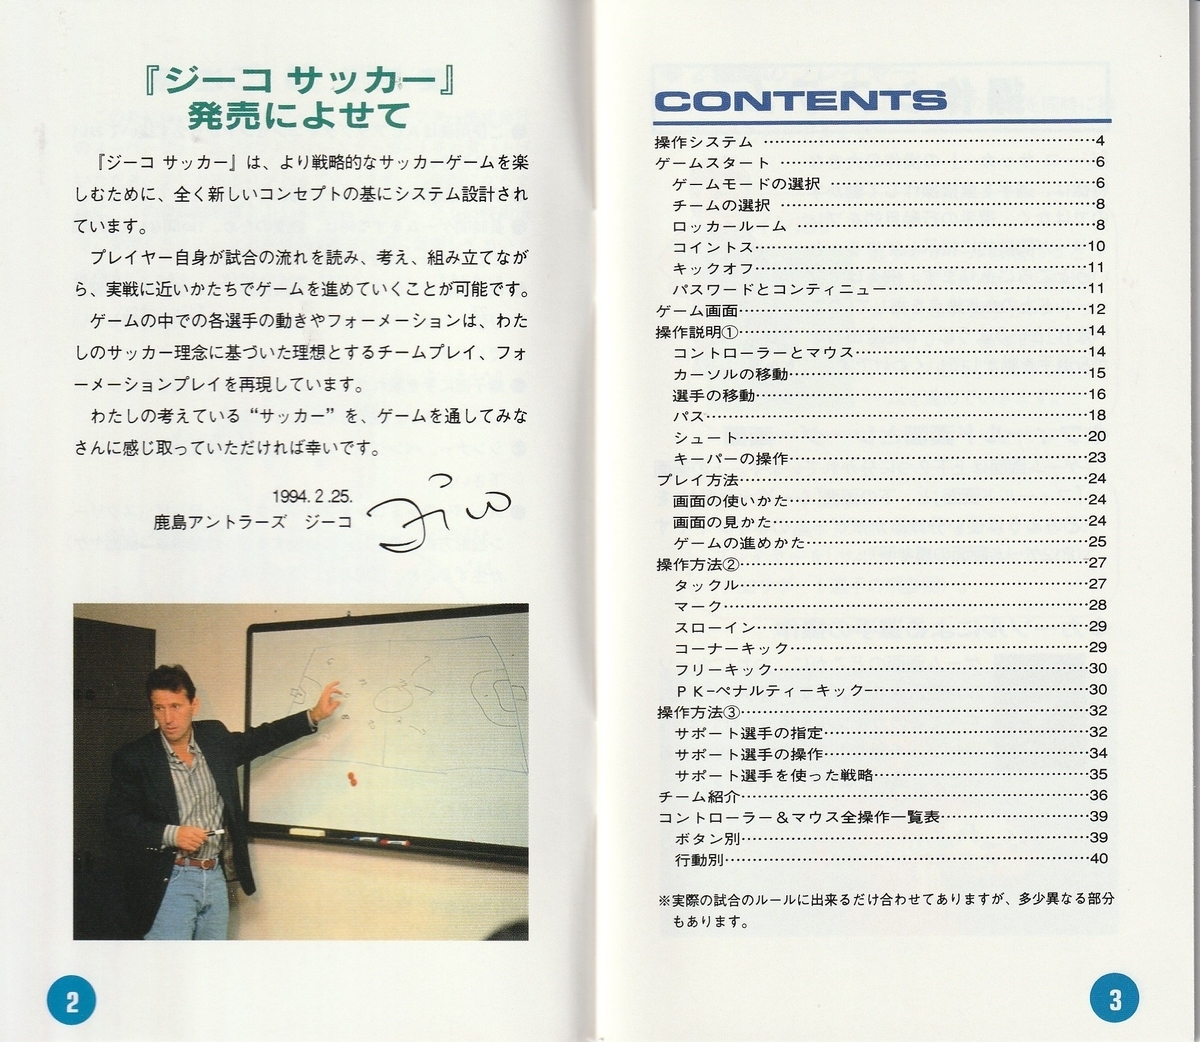 『ジーコ サッカー』
発売によせて
『ジーコ サッカー』は、より戦略的なサッカーゲームを楽
しむために、全く新しいコンセプトの基にシステム設計され
ています。
プレイヤー自身が試合の流れを読み、考え、組み立てなが
ら、実戦に近いかたちでゲームを進めていくことが可能です。
ゲームの中での各選手の動きやフォーメーションは、わた
しのサッカー理念に基づいた理想とするチームプレイ、フォ
ーメーションプレイを再現しています。
わたしの考えている“サッカー”を、ゲームを通してみな
さんに感じ取っていただければ幸いです。
1994. 2 .25.
鹿島アントラーズ　ジーコ
Zico
2
CONTENTS
操作システム …………4
ゲームスタート …………6
ゲームモードの選択 …………6
チームの選択 …………8
ロッカールーム …………8
コイントス…………10
キックオフ…………11
パスワードとコンティニュー…………11
ゲーム画面…………12
操作説明①…………14
コントローラーとマウス…………14
カーソルの移動…………15
選手の移動…………16
パス…………18
シュート…………20
キーパーの操作…………23
プレイ方法…………24
画面の使いかた…………24
画面の見かた…………24
ゲームの進めかた…………25
操作方法②…………27
タックル…………27
マーク…………28
スローイン…………29
コーナーキック…………29
フリーキック…………30
PK-ペナルティーキック…………30
操作方法③…………32
サポート選手の指定…………32
サポート選手の操作…………34
サポート選手を使った戦略…………35
チーム紹介…………36
コントローラー＆マウス全操作一覧表…………39
ボタン別…………39
行動別…………40
※実際の試合のルールに出来るだけ合わせてありますが、多少異なる部分
もあります。
3